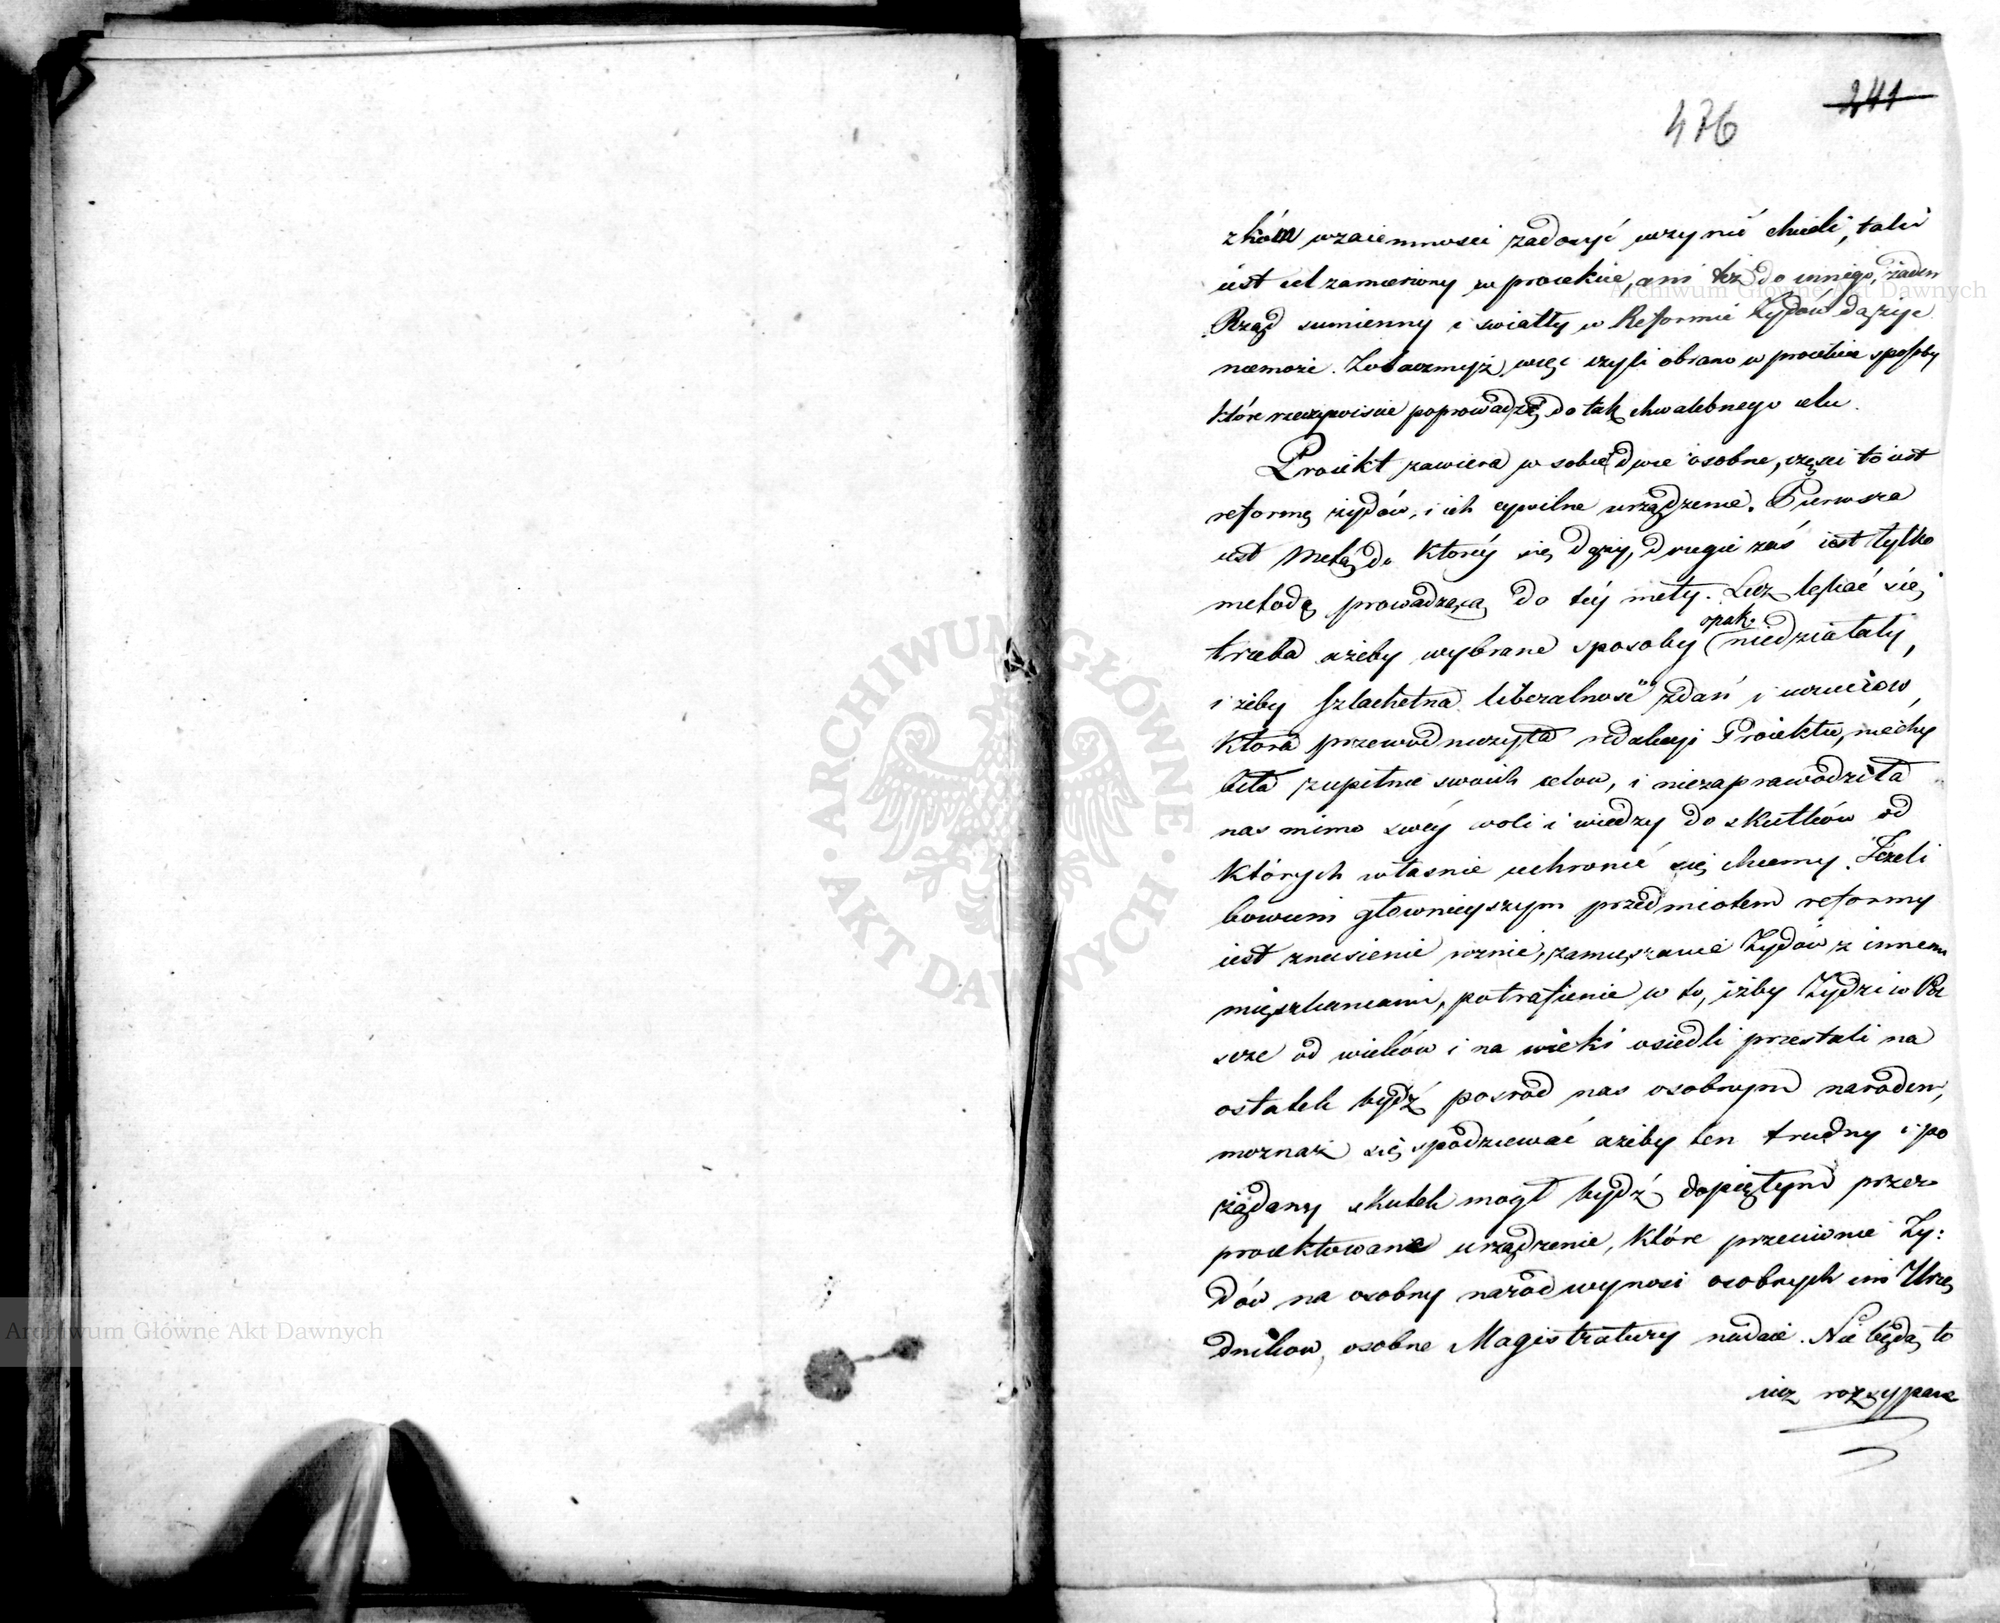 241
476
zkóm wzaiemnosci zadosyć uczynić chcieli, taki
iest cel zamierzony w proiekcie, ani też do innego, żaden
Rząd sumienny i swiatły w Reformie Żydów dążyć
niemoże. Zobaczmyż więc czyli obrano w proiekcie sposoby
które rzeczywiscie poprowadzą do tak chwalebnego celu.
Proiekt zawiera w sobie dwie osobne, częsci to iest
reformę żydów, i ich cywilne urządzenie. Pierwsza
iest Metą do któréy się dąży, drugie zaś iest tylko
metodą prowadzącą do téy mety. Lecz lękać się
opak
trzeba ażeby wybrane sposoby niedziałały,
i żeby szlachetna liberalność zdań i uczuciow,
która przewodniczyła redakcyi Proiektu, niechy
biła zupełnie swoich celow, i niezaprawodziła
nas mimo swéy woli i wiedzy do skutków od
których własnie uchronić się chcemy. Jeżeli
bowiem głownieyszym przedmiotem reformy
iest zniesienie rożnic, zamięszanie Żydów z innemi
mięszkancami, potrafienie w to, iżby Żydzi w Pol
scze od wieków i na wieki osiedli przestali na
ostatek bydź posrod nas osobnym narodem,
moznaż się spodziewać ażeby ten trudny i po
żądany skutek mogł bydź dopiętym przez
proiektowane urządzenie, które przeciwnie Ży:
dów na osobny narod wynosi osobnych im Urzę
dnikow, osobne Magistratury nadaie. Nie będą to
iuż rozsypane
Archiwum Główne Akt Dawnych
Archiwum Główne Akt Dawnych
ARCHIWUM GŁÓWNE · AKT DAWNYCH ·